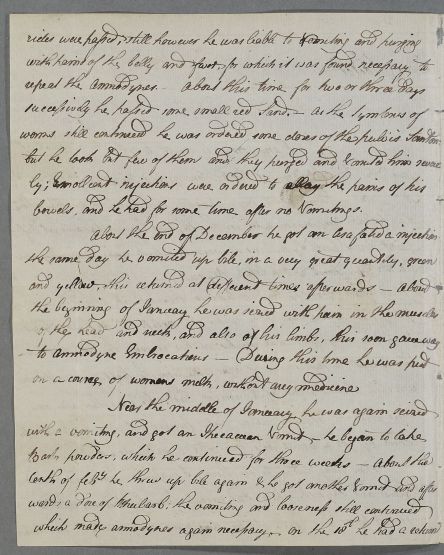 rides were passed, still however he was liable to Vomiting and purging
with pains of the belly and for which it was found necessary to
repeat the annodynes – about this time for two or three days
successively he passed some small red Sand – as the Symtoms of
worms still continued he was ordered some doses of the pulvis
but he took but few of them and they purged and vomited him severe
ly; Emollient injections were ordered to allay the pains of his
bowels, and he had for some time after no Vomitings.
About the end of December he got an asafatida injection
the same day he vomited up bile, in a very great quantity, green
and yellow, this return'd at different times afterwards – about
the beginning of January he was seized with pain in the muscles
of the head and neck, and also of his limbs, this soon gave way
to annodyne Embrocations – During this time he was put
on a course of womens milk, without any medicine
Near the middle of Janeuary, he was again seized
with a vomiting, and got an Ipecacuan Vomit, he began to take
Bark powders, which he continued for three weeks – about the
tenth of febry he threw up bile again & he got another Vomit and after
wards a dose of Rheubarb; the vomiting and looseness still continued
which made annodynes again necessary – on the 18th he had a return